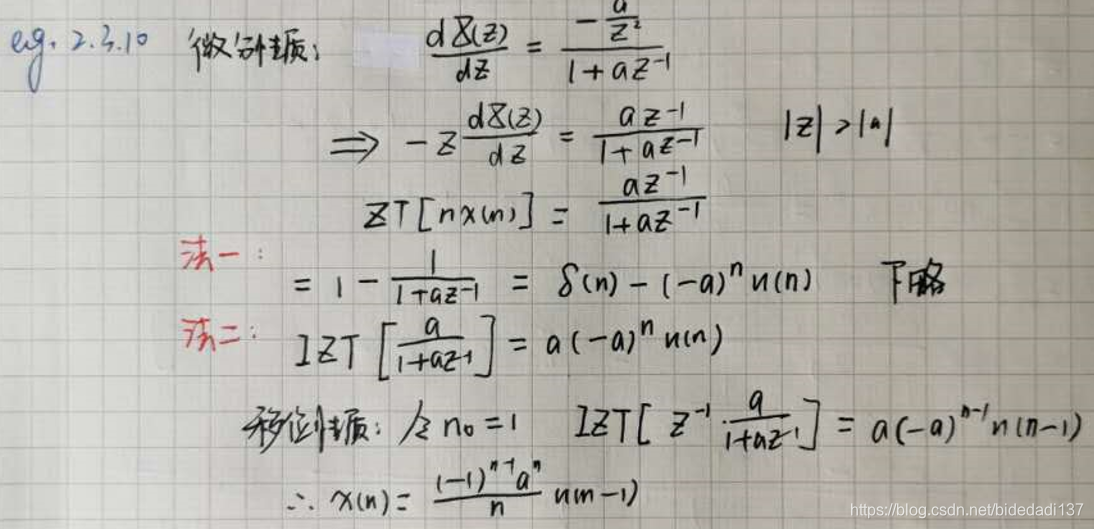 eg. 2.3.10 微分性质: dX(z)/dz = (-a/z²)/(1+az⁻¹)
⇒ -z dX(z)/dz = az⁻¹/(1+az⁻¹) |z|>|a|
ZT[nx(n)] = az⁻¹/(1+az⁻¹)
法一: = 1 - 1/(1+az⁻¹) = δ(n) - (-a)ⁿu(n) 下略
法二: IZT[a/(1+az⁻¹)] = a(-a)ⁿu(n)
移位性质: 令n₀=1 IZT[z⁻¹·a/(1+az⁻¹)] = a(-a)ⁿ⁻¹u(n-1)
∴ x(n) = (-1)ⁿ⁻¹aⁿ/n u(n-1)
https://blog.csdn.net/bidedadi137